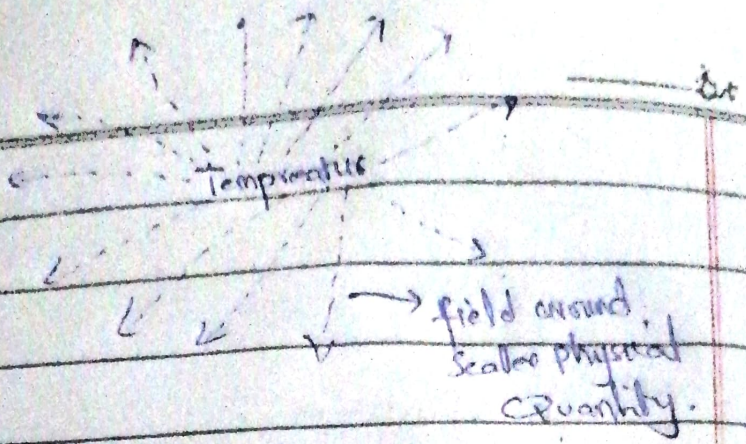 Dt
Tempreatur
field around
Scaler physical
Quantity.